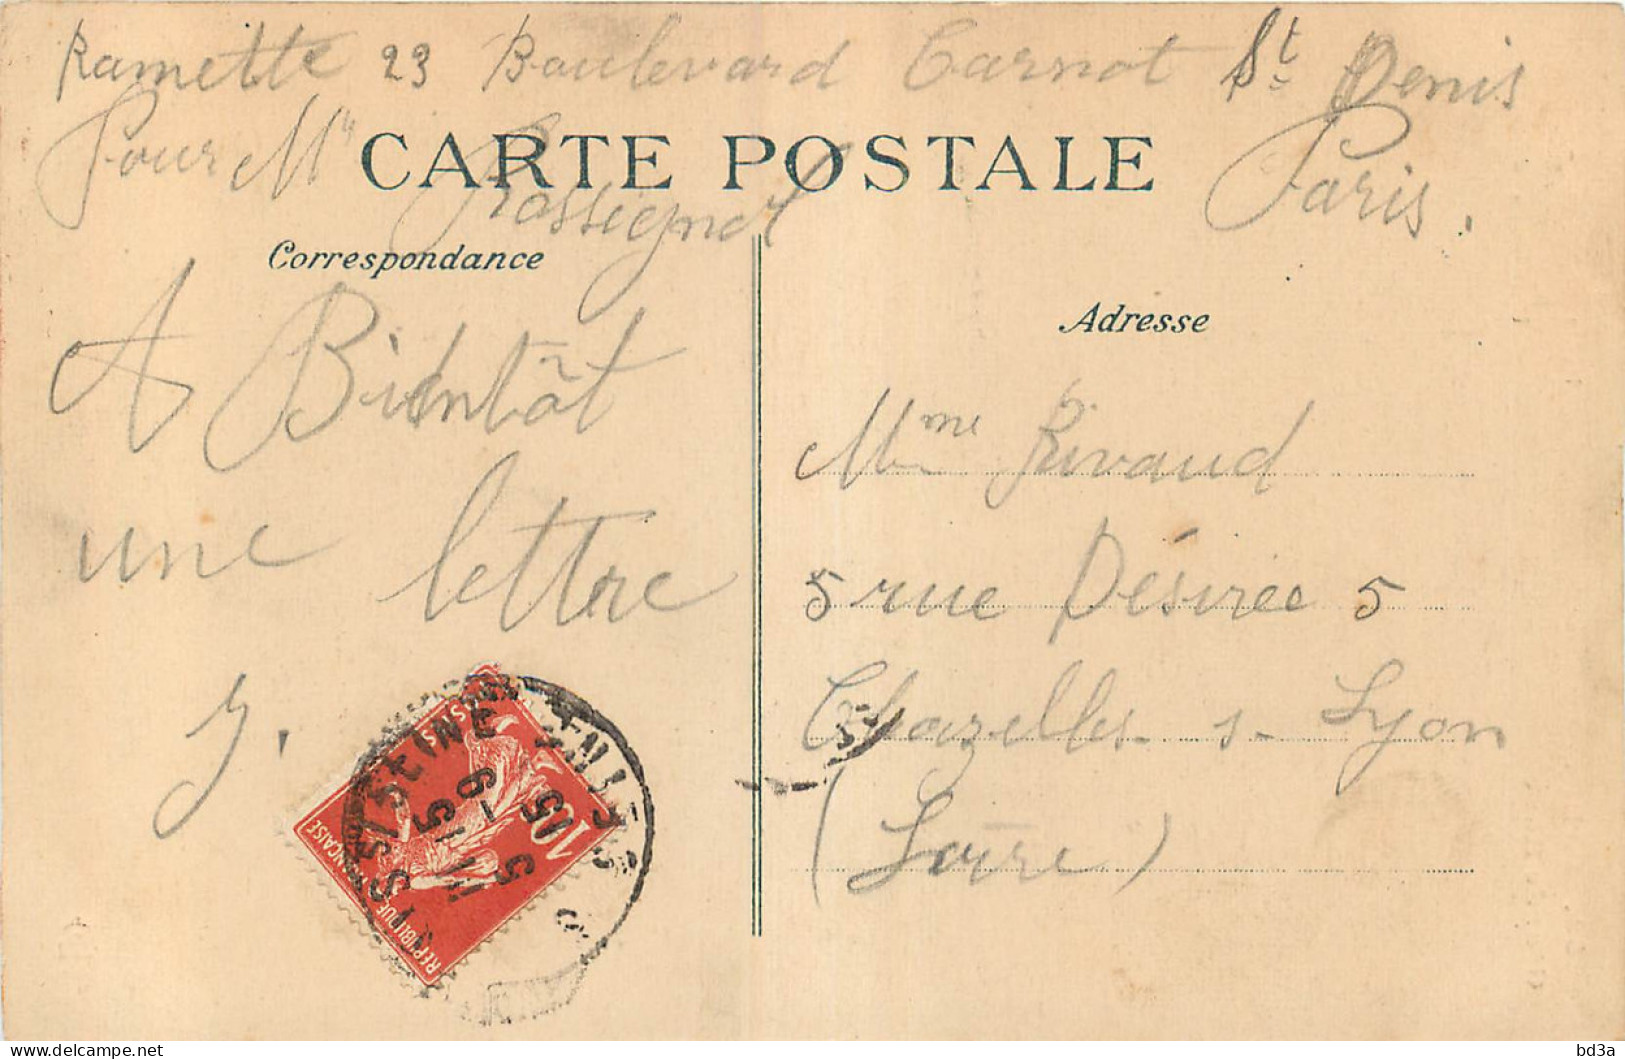 Ramette 23 Boulevard Carnot St Denis
Pour Mlle Rossignol Paris.
CARTE POSTALE
Correspondance
Adresse
A Bientôt
une lettre
J.
Mme Rivaud
5 rue Désirée 5
Chazelles s- Lyon
(Loire)
RÉPUBLIQUE FRANÇAISE
POSTES
10c
St
5
bd3a